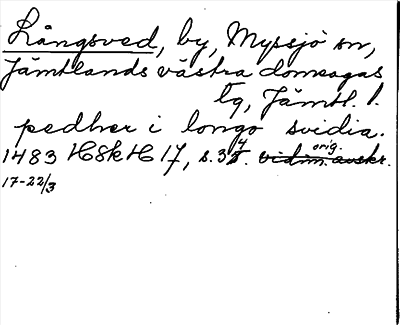 Långsved, by, Myssjö sn,
Jämtlands västra domsagas
tg, Jämtl. l.
pedher i longo svidia.
1483 HSkH 17, s. 34. orig. vidim. avskr.
17-22/3